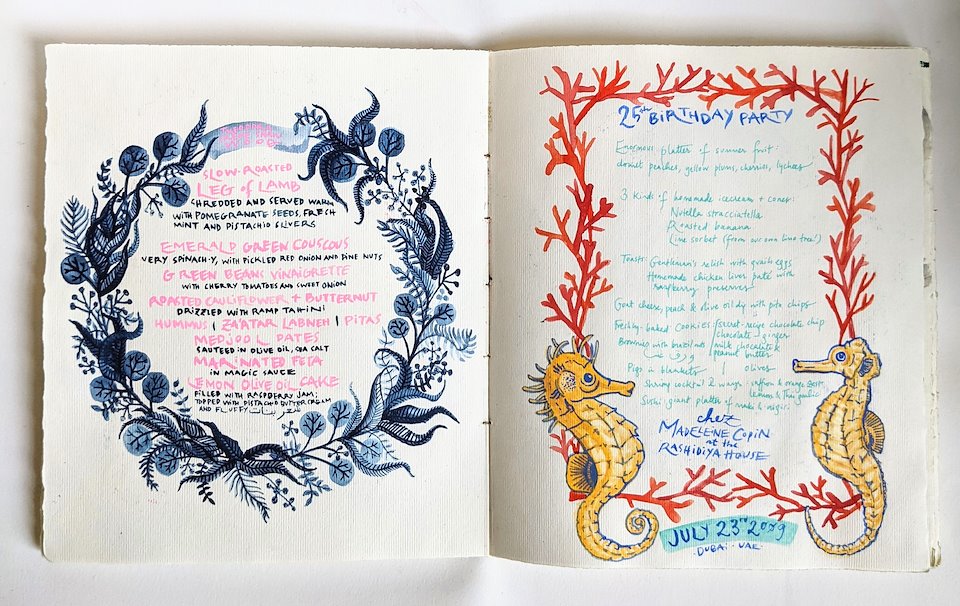 SLOW-ROASTED
LEG OF LAMB
SHREDDED AND SERVED WARM
WITH POMEGRANATE SEEDS, FRESH
MINT AND PISTACHIO SLIVERS
EMERALD GREEN COUSCOUS
VERY SPINACH-Y, WITH PICKLED RED ONION AND PINE NUTS
GREEN BEANS VINAIGRETTE
WITH CHERRY TOMATOES AND SWEET ONION
ROASTED CAULIFLOWER + BUTTERNUT
DRIZZLED WITH RAMP TAHINI
HUMMUS | ZA'ATAR LABNEH | PITAS
MEDJOOL DATES
SAUTEED IN OLIVE OIL, SEA SALT
MARINATED FETA
IN MAGIC SAUCE
LEMON OLIVE OIL CAKE
FILLED WITH RASPBERRY JAM;
TOPPED WITH PISTACHIO BUTTERCREAM
AND FLUFFY شعر بنات
25th BIRTHDAY PARTY
Enormous platter of summer fruit:
donut peaches, yellow plums, cherries, lychees
3 kinds of homemade icecream + cones:
Nutella stracciatella
Roasted banana
Lime sorbet (from our own lime tree!)
Toasts: Gentleman's relish with quails eggs
Homemade chicken liver paté with
raspberry preserves
Goat cheese, peach & olive oil dip with pita chips
Freshly-baked cookies: secret-recipe chocolate chip
chocolate-ginger
Brownies with brazil nuts / milk chocolate &
peanut butter
Pigs in blankets | olives
Shrimp cocktail 2 ways: saffron & orange zest,
lemon & Thai garlic
Sushi: giant platter of maki & nigiri.
chez
MADELENE COPIN
at the
RASHIDIYA HOUSE
JULY 23rd 2019
·DUBAI·UAE·